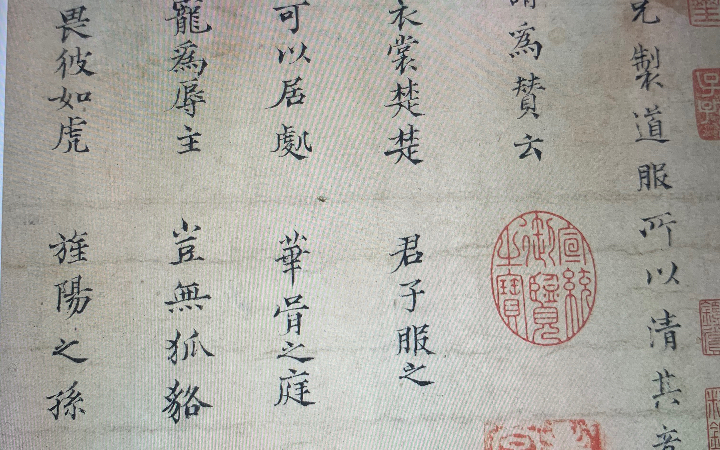 兄製道服所以清其
爲賛云
宣統御覽之寶
衣裳楚楚 君子服之
可以居處 華胥之庭
寵爲辱主 豈無狐貉
畏彼如虎 旌陽之孫